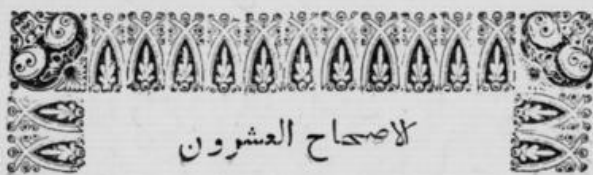 الاصحاح العشرون